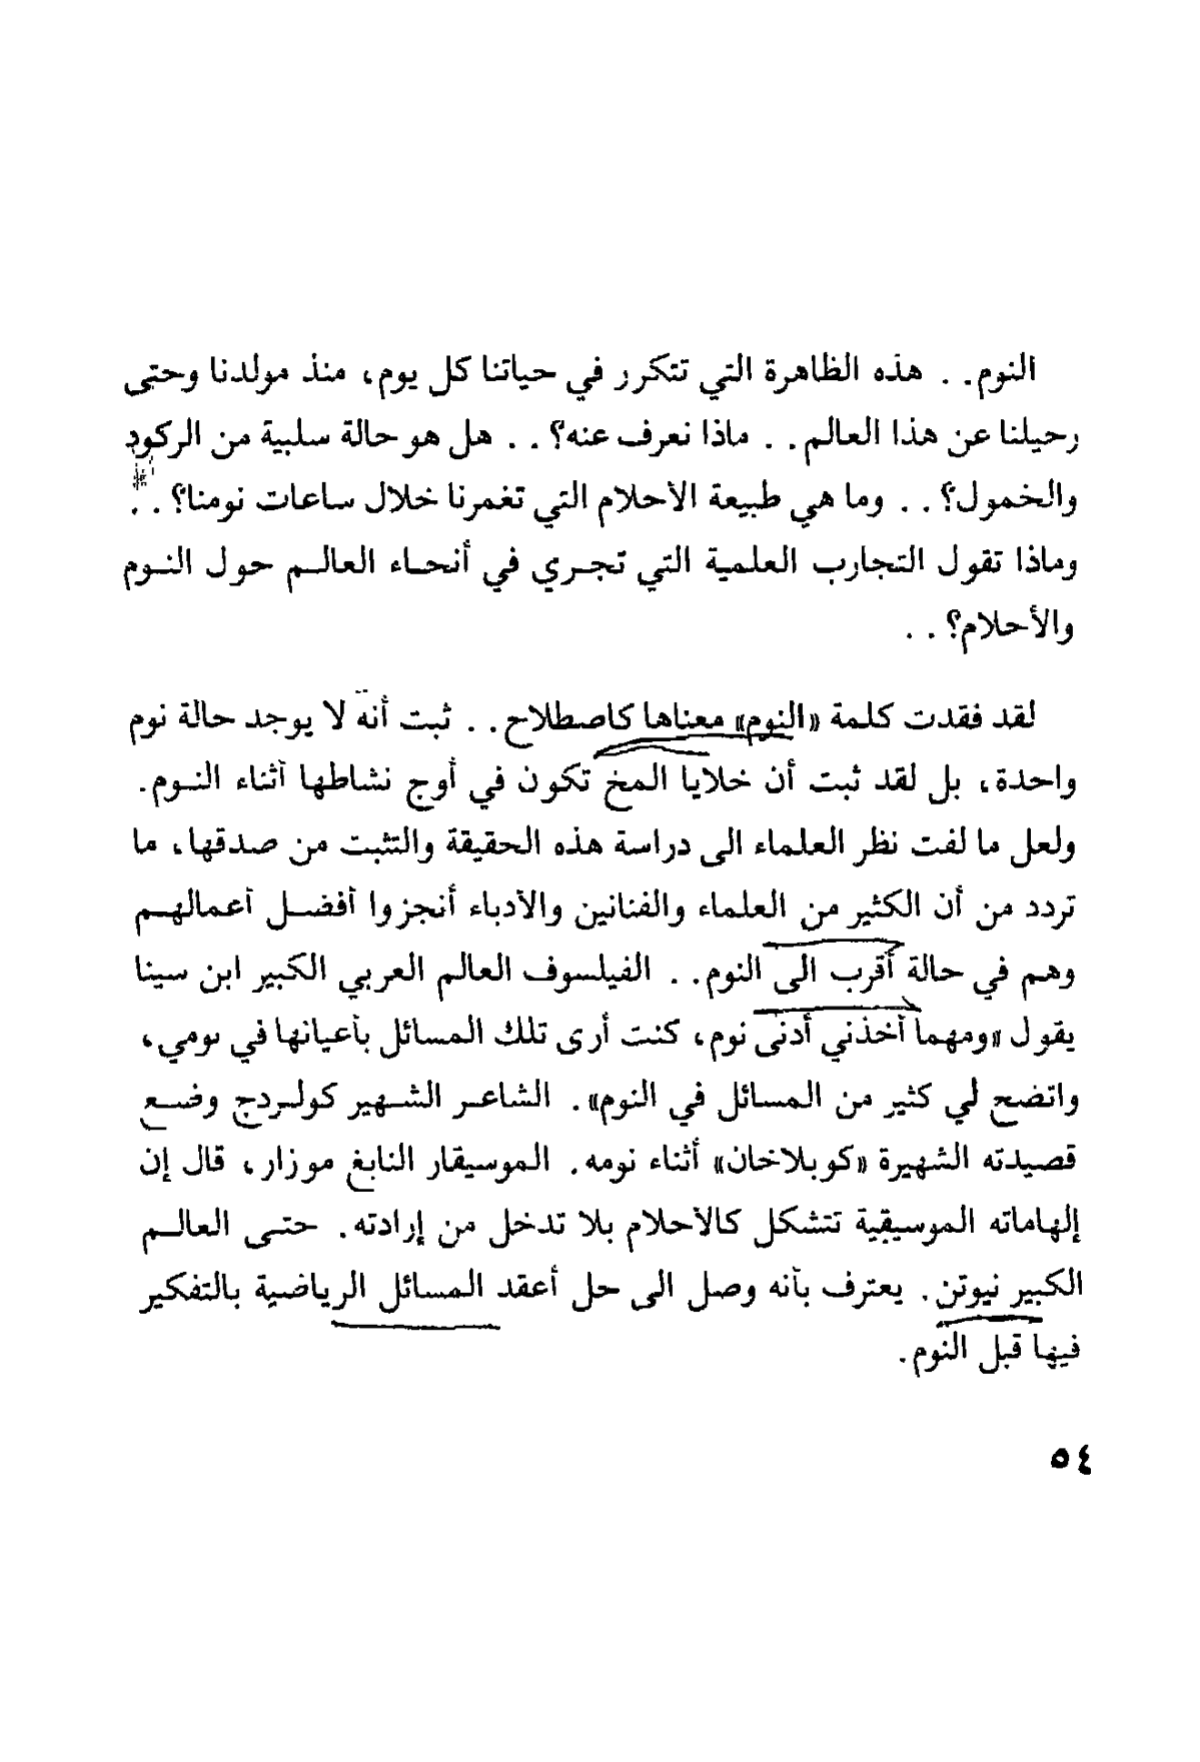 النوم. . هذه الظاهرة التي تتكرر في حياتنا كل يوم، منذ مولدنا وحتى
رحيلنا عن هذا العالم. . ماذا نعرف عنه؟ . . هل هو حالة سلبية من الركود
والخمول؟ . . وما هي طبيعة الأحلام التي تغمرنا خلال ساعات نومنا؟ . .
وماذا تقول التجارب العلمية التي تجري في أنحاء العالم حول النوم
والأحلام؟ . .
لقد فقدت كلمة «النوم» معناها كاصطلاح. . ثبت أنه لا يوجد حالة نوم
واحدة، بل لقد ثبت أن خلايا المخ تكون في أوج نشاطها أثناء النوم.
ولعل ما لفت نظر العلماء الى دراسة هذه الحقيقة والتثبت من صدقها، ما
تردد من أن الكثير من العلماء والفنانين والأدباء أنجزوا أفضل أعمالهم
وهم في حالة أقرب الى النوم. . الفيلسوف العالم العربي الكبير ابن سينا
يقول «ومهما أخذني أدنى نوم، كنت أرى تلك المسائل بأعيانها في نومي،
واتضح لي كثير من المسائل في النوم». الشاعر الشهير كولردج وضع
قصيدته الشهيرة «كوبلاخان» أثناء نومه. الموسيقار النابغ موزار، قال إن
إلهاماته الموسيقية تتشكل كالأحلام بلا تدخل من إرادته. حتى العالم
الكبير نيوتن. يعترف بأنه وصل الى حل أعقد المسائل الرياضية بالتفكير
فيها قبل النوم.
٥٤